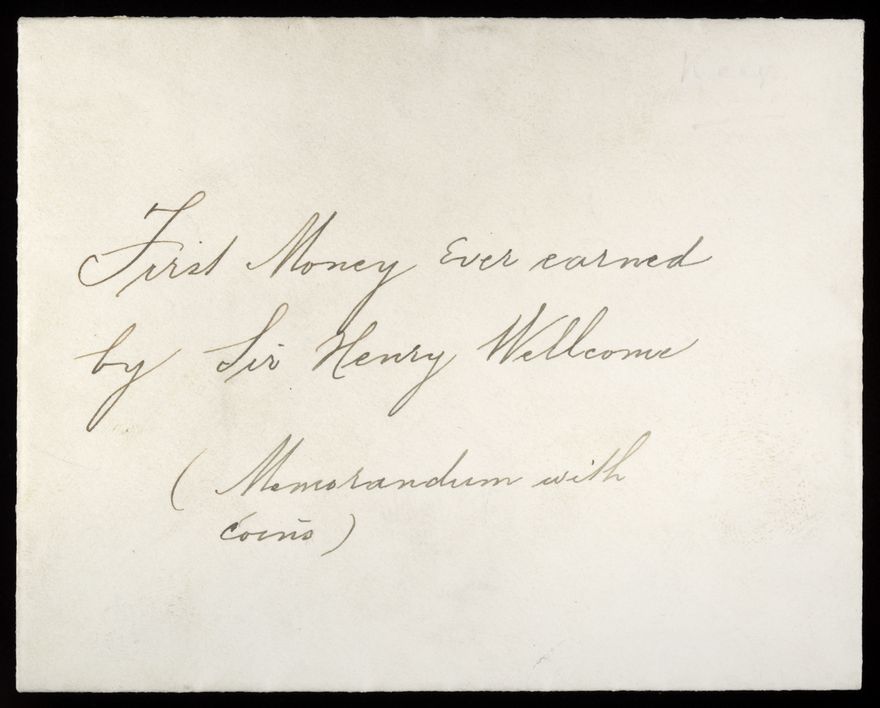 First Money Ever earned
by Sir Henry Wellcome
( Memorandum with
Coins )